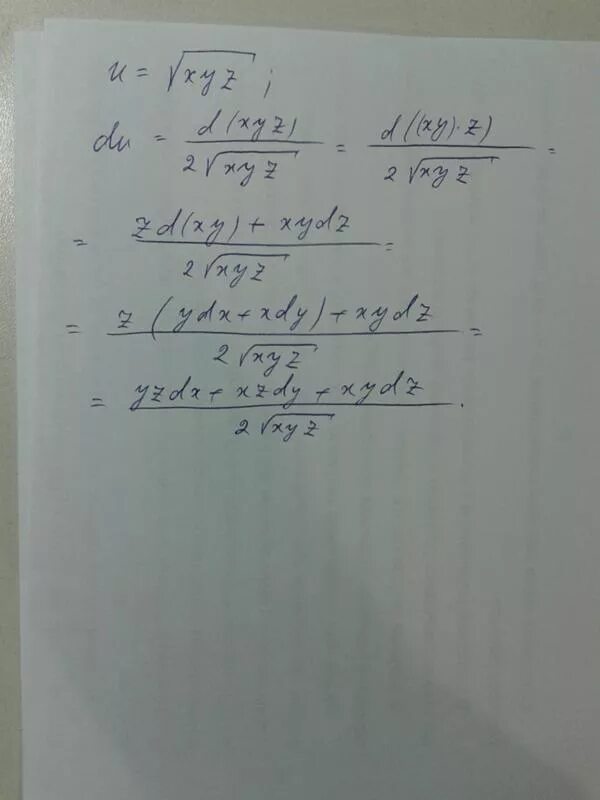 u = √xyz ;
du = d(xyz) / 2√xyz = d((xy)·z) / 2√xyz =
= zd(xy) + xydz / 2√xyz =
= z (ydx + xdy) + xydz / 2√xyz =
= yzdx + xzdy + xydz / 2√xyz .